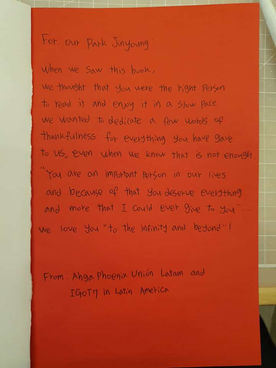 For our Park Jinyoung
When we saw this book,
we thought that you were the right person
to read it and enjoy it in a slow pace
we wanted to dedicate a few words of
thankfulness for everything you have gave
to us, even when we know that is not enough
"You are an important person in our lives
and because of that you deserve everything
and more that I could ever give to you"...
we love you "to the infinity and beyond"!
From. Ahga Phoenix Unión Latam and
IGOT7 in Latin America